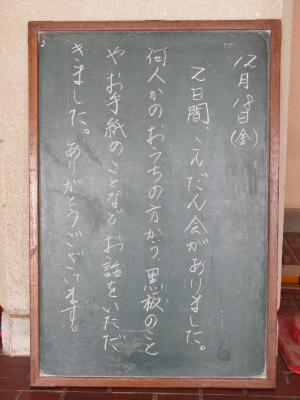 12月18日(金)
2日間、こんだん会がありました。
何人かのおうちの方から、黒板のこと
やお手紙のことなどお話をいただ
きました。ありがとうございます。